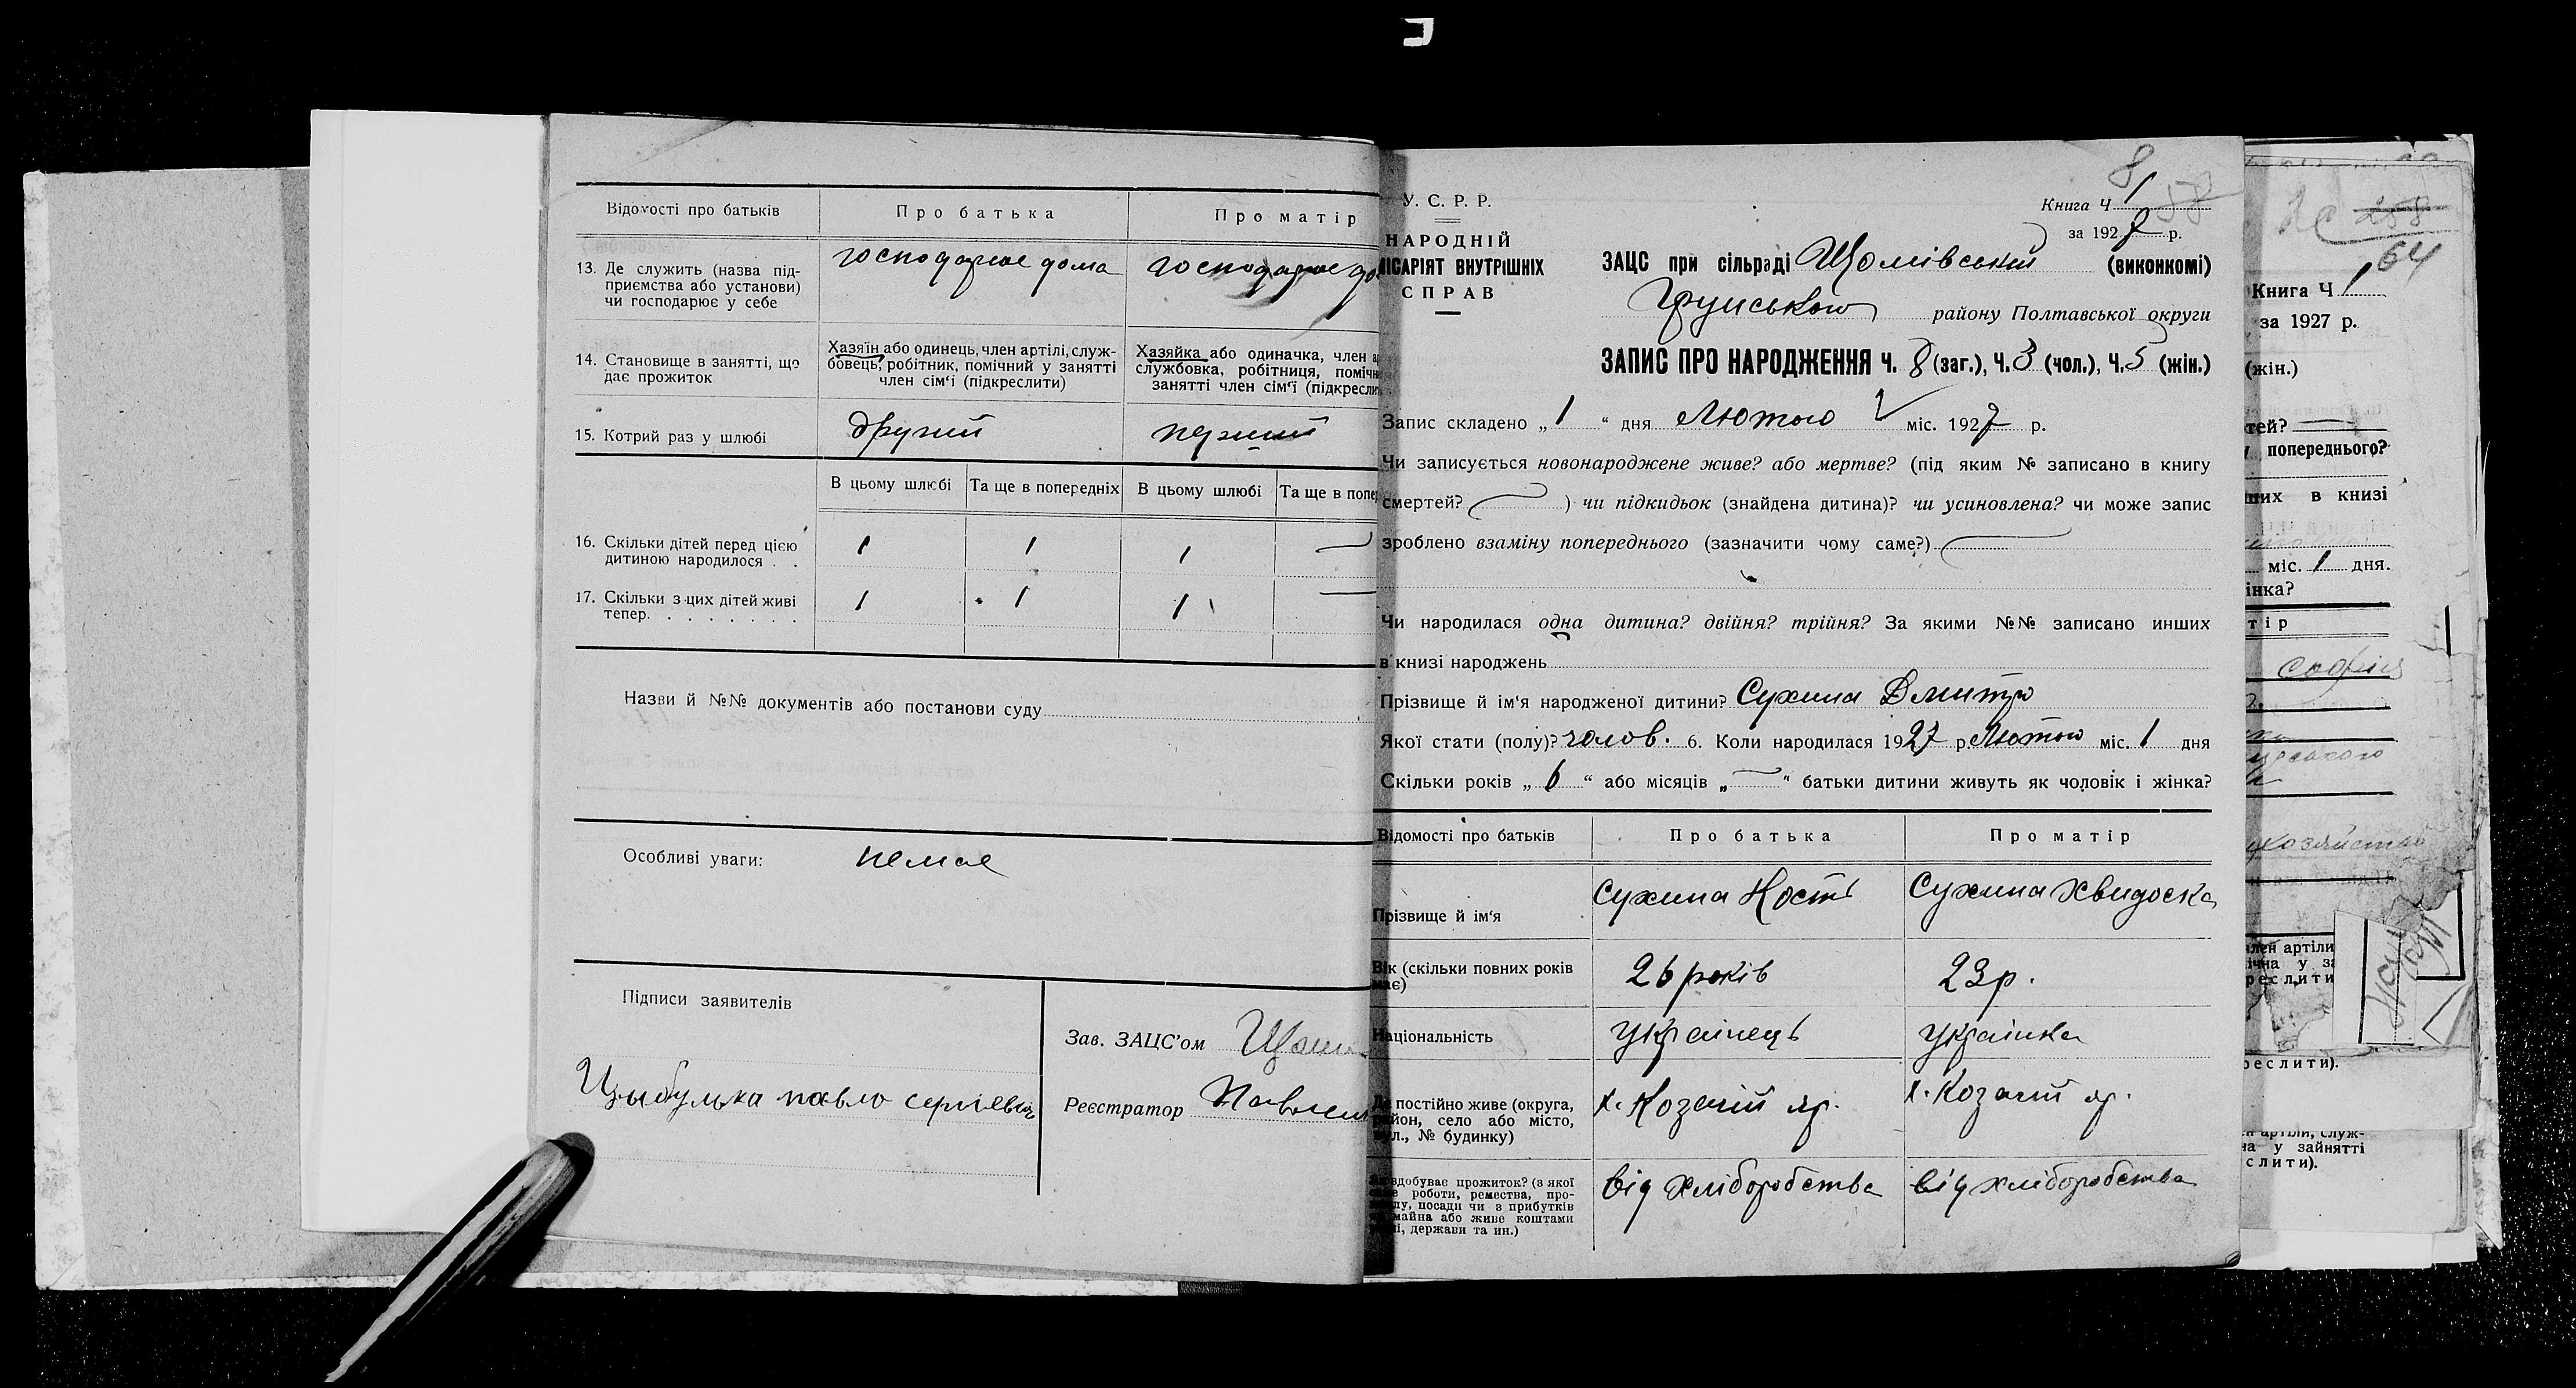 Відомості про батьків
Про батька
Про матір
13. Де служить (назва під-
приємства або установи)
чи господарює у себе
господарює дома
господарює до
14. Становище в занятті, що
дає прожиток
Хазяїн або одинець, член артілі, служ-
бовець, робітник, помічний у занятті
член сім‘ї (підкреслити)
Хазяйка або одиначка, член а
службовка, робітниця, помічн
занятті член сім‘ї (підкресли
15. Котрий раз у шлюбі
другий
перший
В цьому шлюбі
Та ще в попередніх
В цьому шлюбі
Та ще в попе
16. Скільки дітей перед цією
дитиною народилося . .
1
1
1
17. Скільки з цих дітей живі
тепер. . . . . . . .
1
1
1
Назви й №№ документів або постанови суду
Особливі уваги:
немає
Підписи заявителів
Цыбулька павло
Зав. ЗАЦС’ом
Реєстратор
У. С. Р. Р.
НАРОДНІЙ
ІСАРІЯТ ВНУТРІШНІХ
СПРАВ
8
58
Книга Ч 1
за 1927 р.
ЗАЦС при сільраді Щомівський (виконкомі)
Грунського району Полтавської округи
ЗАПИС ПРО НАРОДЖЕННЯ Ч. 8 (заг.), Ч. 3 (чол.), Ч. 5 (жін.)
Запис складено „ 1 “ дня Лютого міс. 1927 р.
Чи записується новонароджене живе? або мертве? (під яким № записано в книгу
смертей? ) чи підкидьок (знайдена дитина)? чи усиновлена? чи може запис
зроблено взаміну попереднього (зазначити чому саме?)
Чи народилася одна дитина? двійня? трійня? За якими №№ записано инших
в книзі народжень
Прізвище й ім‘я народженої дитини? Сухина Дмитро
Якої стати (полу)? чолов. 6. Коли народилася 1927 р. Лютого міс. 1 дня
Скільки років „ 6 “ або місяців „ “ батьки дитини живуть як чоловік і жінка?
Відомості про батьків
Про батька
Про матір
Прізвище й ім‘я
Сухина Кость
Сухина Хвидоска
Вік (скільки повних років
має)
26 років
23 р.
Національність
Українець
Українка
постійно живе (округа,
район, село або місто,
вул., № будинку)
х. Козачій яр.
х. Козачій яр.
здобуває прожиток? (з якої
роботи, ремества, про-
посади чи з прибутків
майна або живе коштами
держави та ин.)
від хліборобства
від хліборобства
258
64
Книга Ч 1
за 1927 р.
(жін.)
тей?
попереднього?
ших в книзі
міс. 1 дня.
інка?
тір
софія
лен артіли
ічна у за
реслити
реслити).
н артіли, служ-
на у зайнятті
слити).